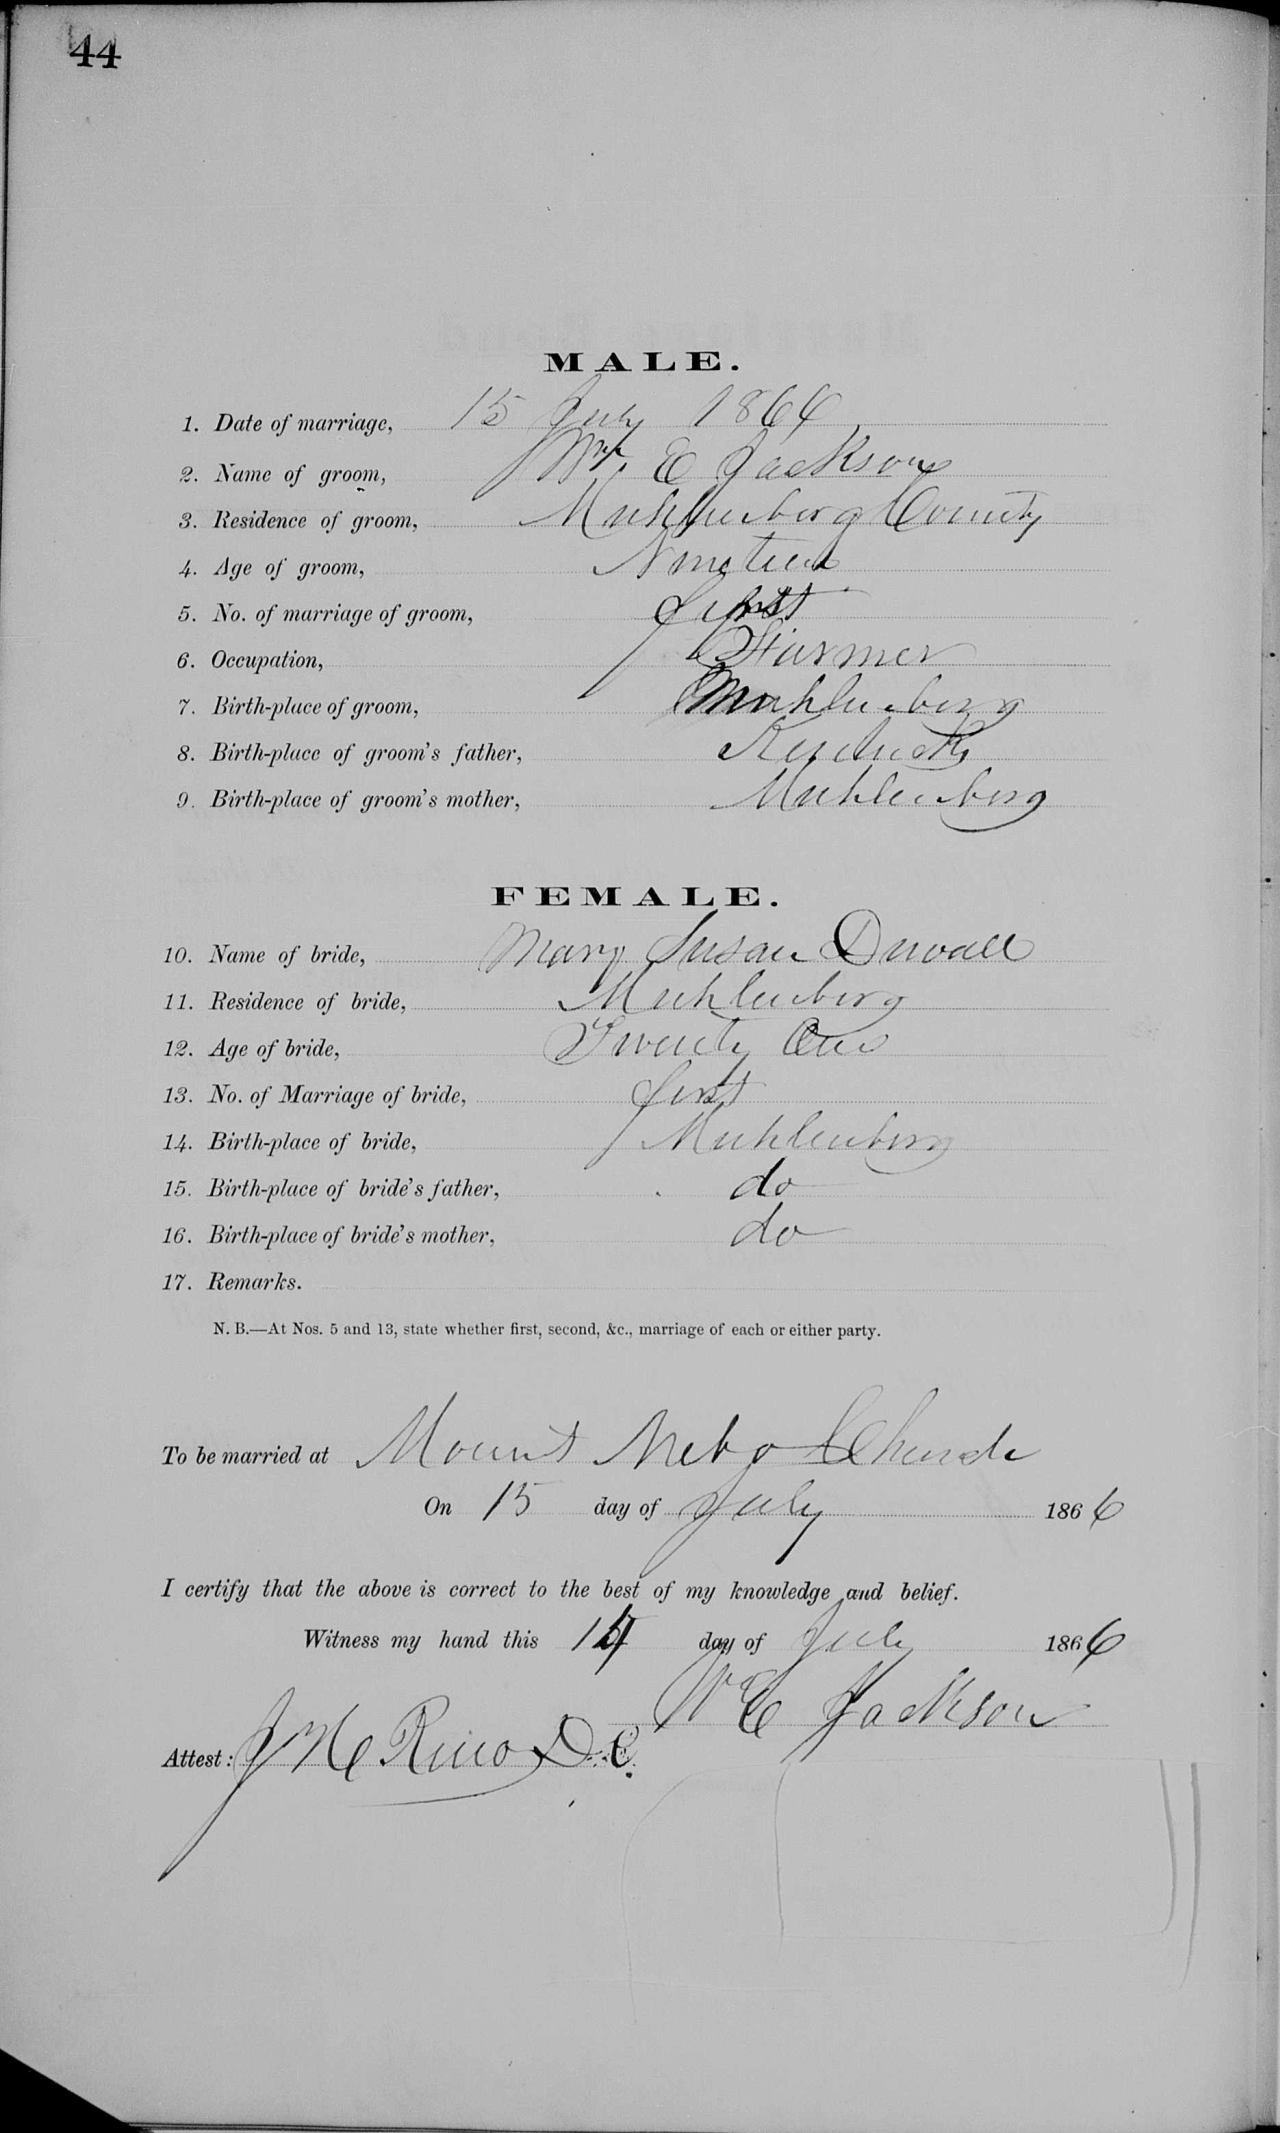 44
MALE.
1. Date of marriage, 15 July 1866
2. Name of groom, Wm E Jackson
3. Residence of groom, Muhlenberg County
4. Age of groom, Nineteen
5. No. of marriage of groom, first
6. Occupation, Farmer
7. Birth-place of groom, Muhlenberg
8. Birth-place of groom's father, Kentucky
9. Birth-place of groom's mother, Muhlenberg
FEMALE.
10. Name of bride, Mary Susan Duvall
11. Residence of bride, Muhlenberg
12. Age of bride, Twenty One
13. No. of Marriage of bride, first
14. Birth-place of bride, Muhlenberg
15. Birth-place of bride's father, do
16. Birth-place of bride's mother, do
17. Remarks.
N. B.—At Nos. 5 and 13, state whether first, second, &c., marriage of each or either party.
To be married at Mount Nebo Church
On 15 day of July 1866
I certify that the above is correct to the best of my knowledge and belief.
Witness my hand this 14 day of July 1866
W E Jackson
Attest: J H Reno D.C.